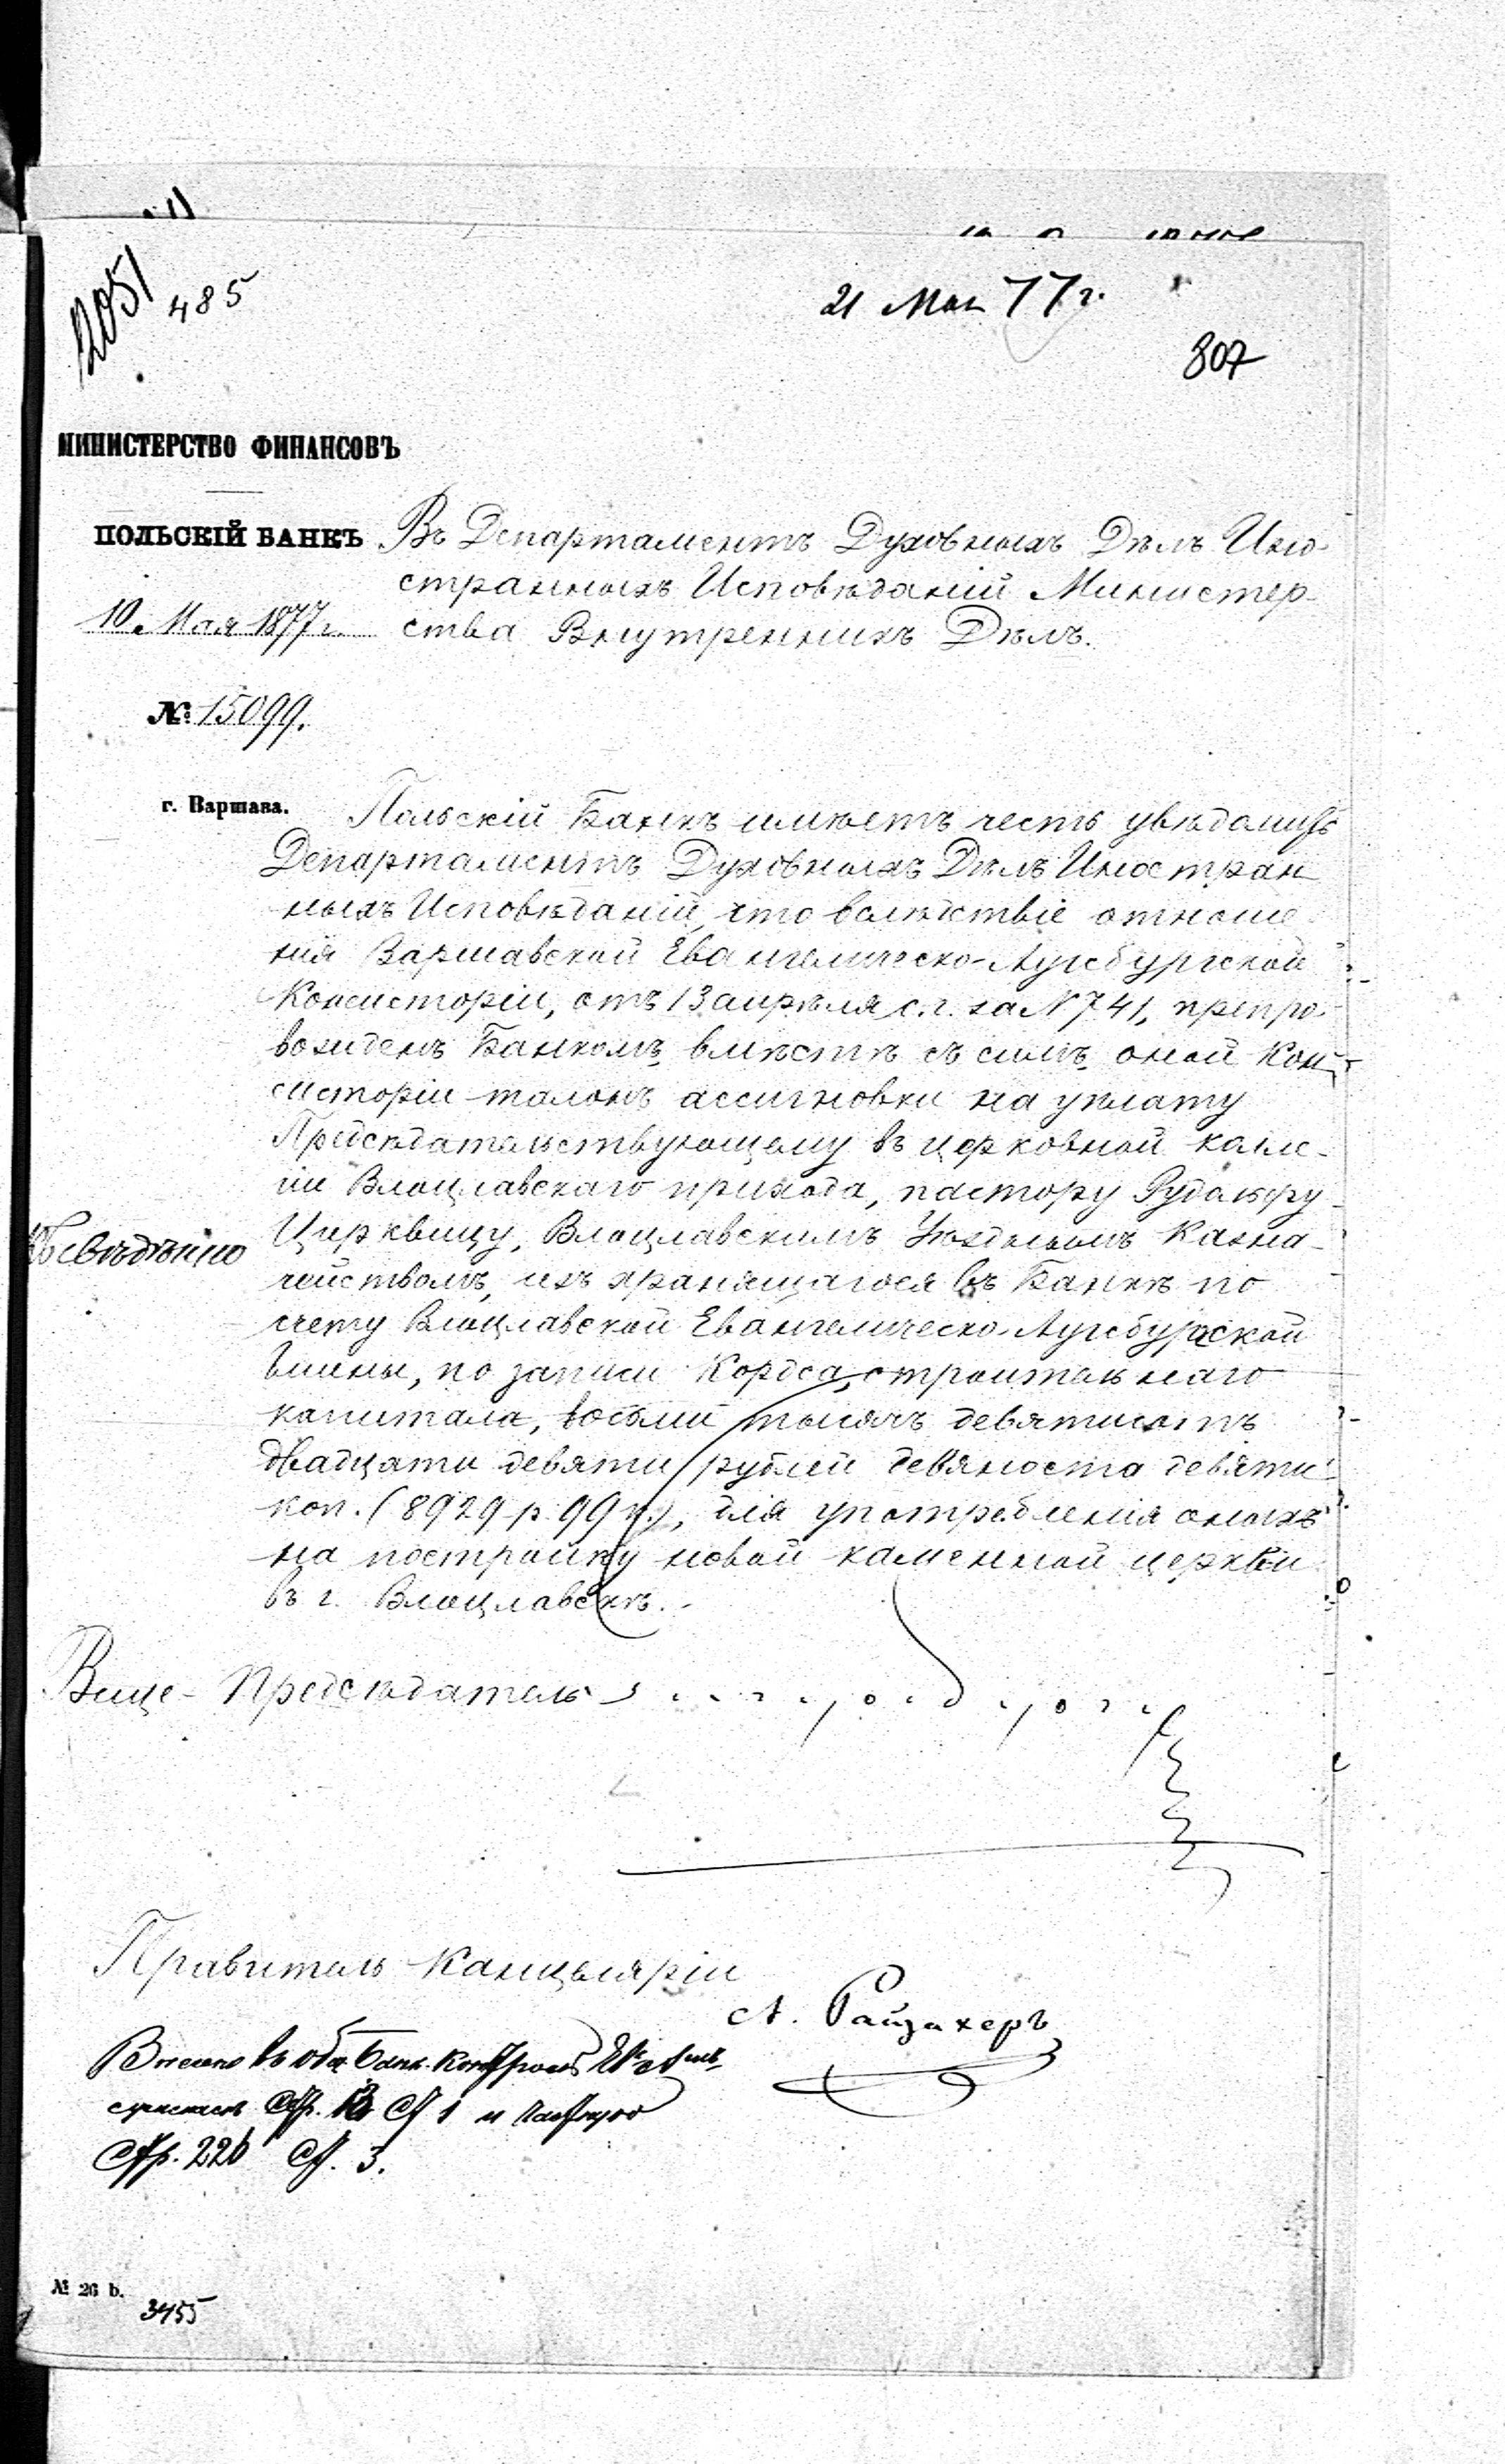 12051
485
21 Мая 77 г.
807
МИНИСТЕРСТВО ФИНАНСОВЪ
ПОЛЬСКІЙ БАНКЪ
10 Мая 1877 г.
№ 15099.
г. Варшава.
Въ Департаментъ Духовныхъ Дѣлъ Ино-
странныхъ Исповѣданій Министер-
ства Внутреннихъ Дѣлъ.
Польскій Банкъ имѣетъ честь увѣдомить
Департаментъ Духовныхъ Дѣлъ Иностран
ныхъ Исповѣданій, что вслѣдствіе отноше
нія Варшавской Евангелическо-Аугсбургской
Консисторіи, отъ 13 апрѣля с.г. за N 741, препро-
вожденъ Банкомъ вмѣстѣ съ симъ оной Кон-
систоріи талонъ ассигновки на уплату
Предсѣдательствующему въ церковной колле-
гіи Влоцлавскаго прихода, пастору Рудольфу
Церквицу, Влоцлавскимъ Уѣзднымъ Казна-
чействомъ, изъ хранящагося въ Банкѣ по
счету Влоцлавской Евангелическо-Аугсбургской
Гмины, по записи Кордса, строительнаго
капитала, восьми тысячъ девятисотъ
двадцати девяти рублей девяноста девяти
коп. (8929 р. 99 к.), для употребленія оныхъ
на постройку новой каменной церкви
въ г. Влоцлавскѣ.
Къ свѣдѣнію
Вице-Предсѣдатель
Правитель Канцеляріи
А. Райзахеръ
Внесено въ
Стр. Ст 1 и
Стр. 226 Ст. 3.
№ 26 b.
3455